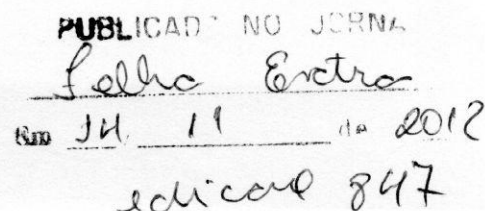 PUBLICADO NO JORNAL
Folha Extra
Em 14 11 de 2012
edicao 847